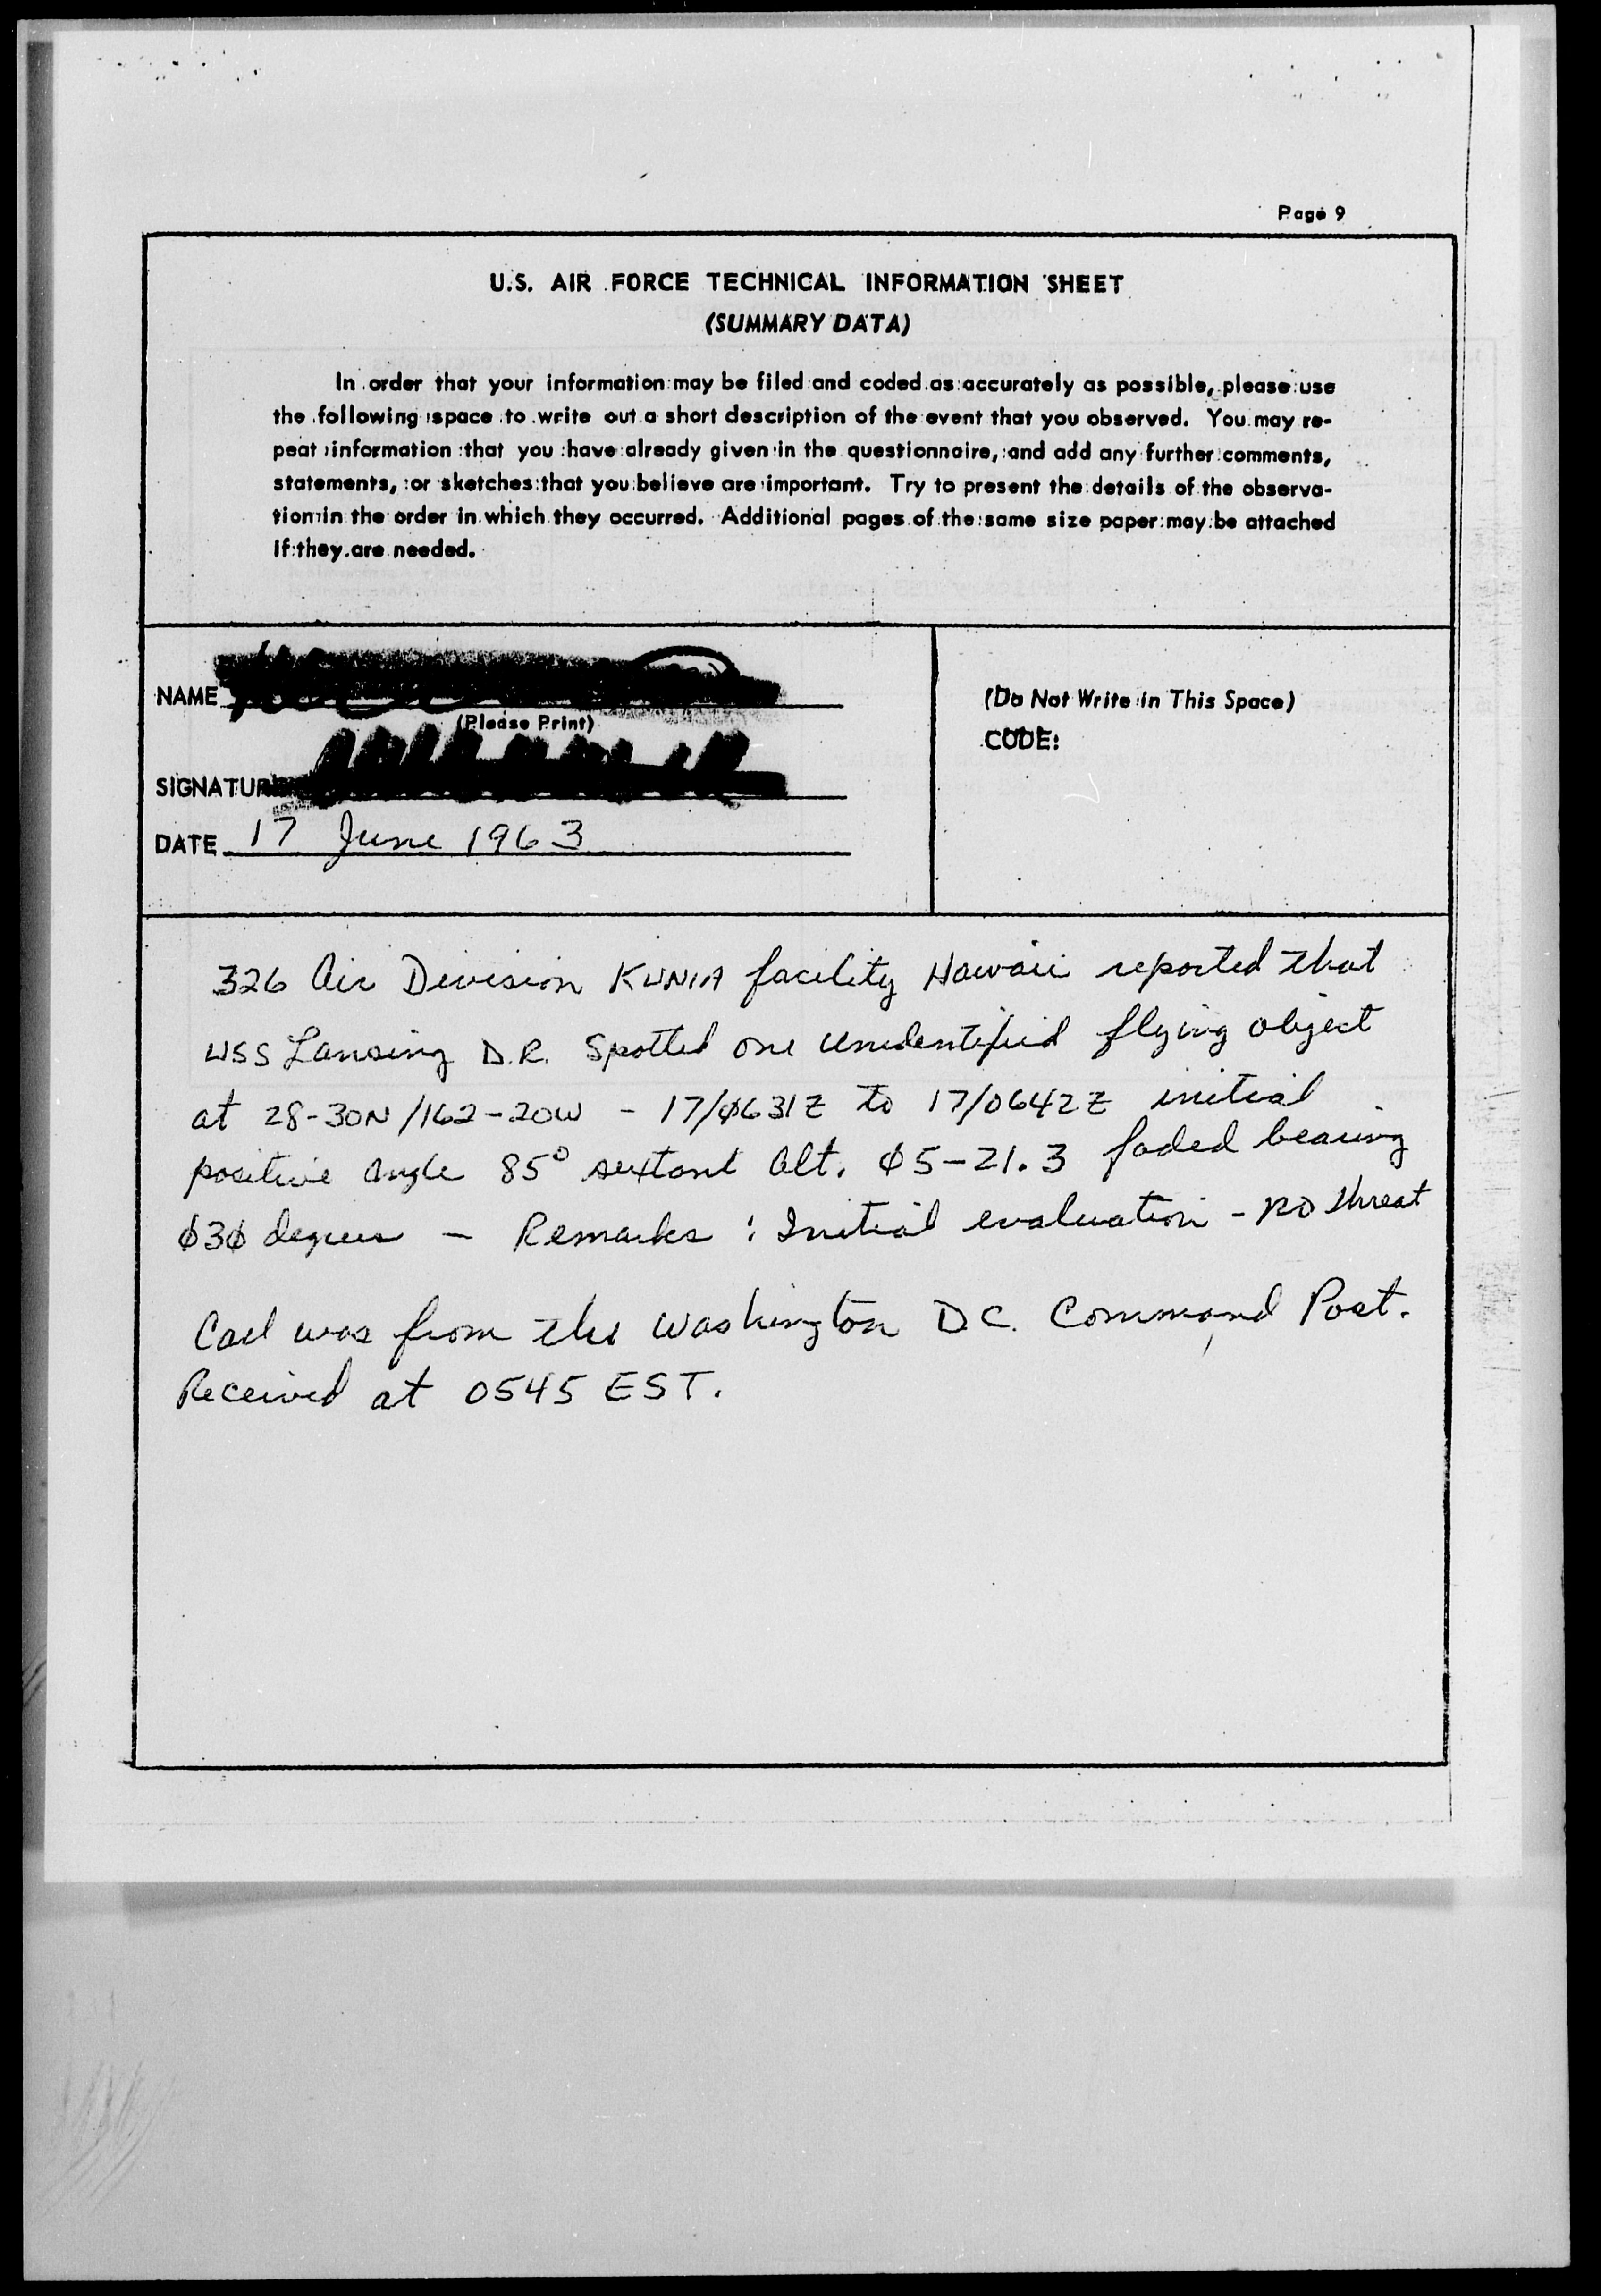 Page 9
U.S. AIR FORCE TECHNICAL INFORMATION SHEET
(SUMMARY DATA)
In order that your information may be filed and coded as accurately as possible, please use
the following space to write out a short description of the event that you observed. You may re-
peat information that you have already given in the questionnaire, and add any further comments,
statements, or sketches that you believe are important. Try to present the details of the observa-
tion in the order in which they occurred. Additional pages of the same size paper may be attached
if they are needed.
NAME
(Please Print)
SIGNATURE
DATE 17 June 1963
(Do Not Write in This Space)
CODE:
326 Air Division KUNIA facility Hawaii reported that
USS Lansing D.R. Spotted one unidentified flying object
at 28-30N/162-20W - 17/0631Z to 17/0642Z initial
positive angle 85° sextant alt. Ø5-21.3 faded bearing
Ø3Ø degrees - Remarks: Initial evaluation - no threat
Call was from the Washington D.C. Command Post.
Received at 0545 EST.